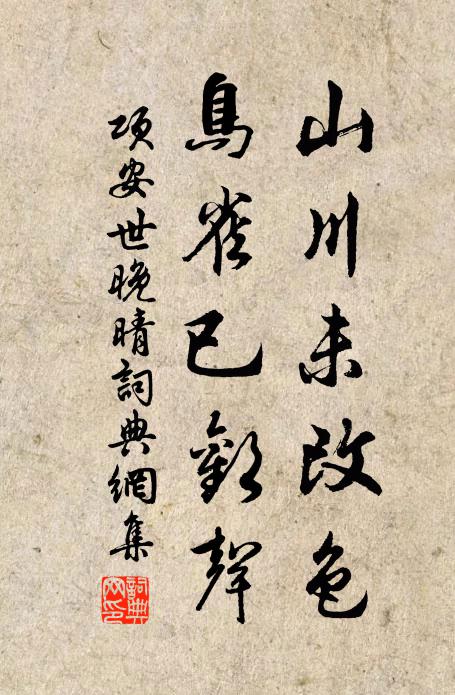 山川未改色
鳥雀已歡聲
項安世晚晴詞典網集
詞典網印